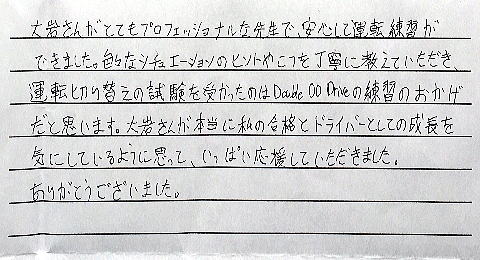 大岩さんがとてもプロフェッショナルな先生で、安心して運転練習が
できました。色々なシチュエーションのヒントやこつを丁寧に教えていただき、
運転切り替えの試験を受かったのはDouble OO Driveの練習のおかげ
だと思います。大岩さんが本当に私の合格とドライバーとしての成長を
気にしているように思って、いっぱい応援していただきました。
ありがとうございました。